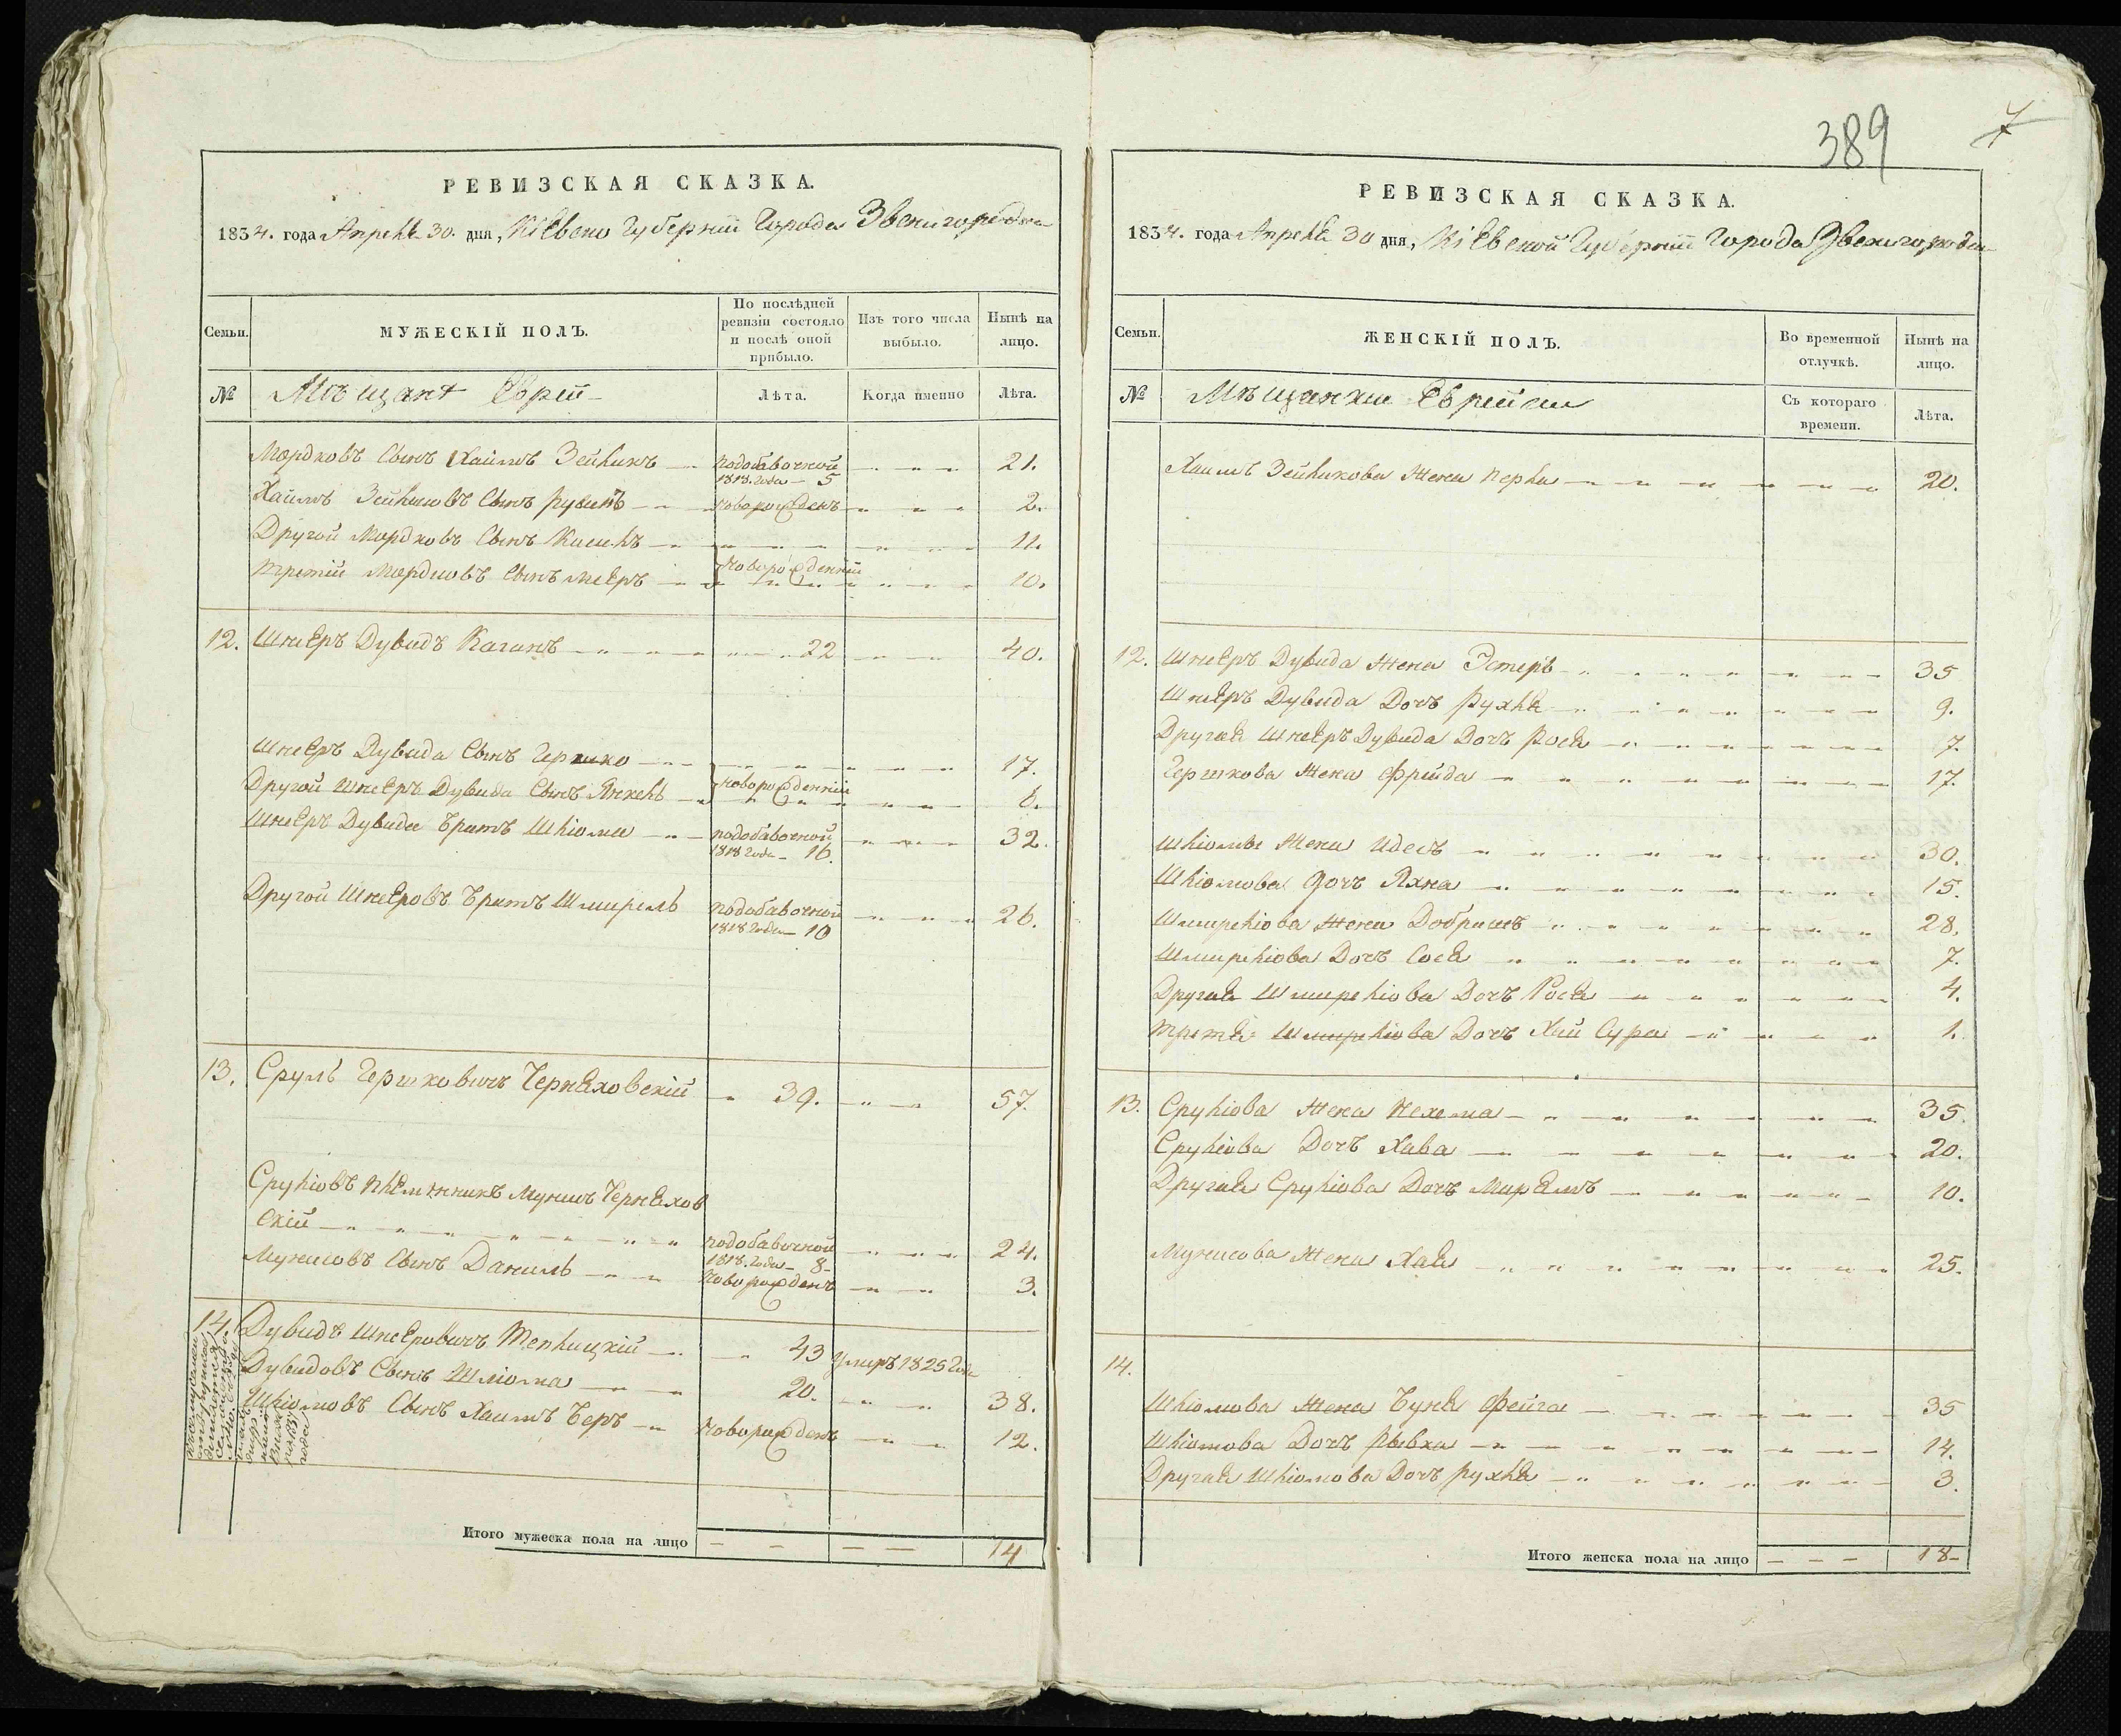 389
7
РЕВИЗСКАЯ СКАЗКА.
1834. года Апреля 30. дня, Кіевско Губерніи Города Звенигородки
Семьи.
МУЖЕСКІЙ ПОЛЪ.
По послѣдней ревизіи состояло и послѣ оной прибыло.
Изъ того числа выбыло.
Нынѣ на лицо.
№
Мѣщанѣ Еврей
Лѣта.
Когда именно
Лѣта.
Мордковъ Сынъ Хаимъ Зейликъ подобавочной 1818. года 5 21.
Хаимъ Зейликовъ Сынъ Рувинъ новорожденъ 2.
Другой Мордковъ Сынъ Кисиль 11.
третій Мордковъ Сынъ мееръ новорожденній 10.
12. Шнеяръ Дувидъ Каганъ 22 40.
Шнеяръ Дувида Сынъ Гершко 17.
Другой Шнеяръ Дувида Сынъ Янкель новорожденній 6.
Шнеяръ Дувида Братъ Шліома подобавочной 1818 года 16. 32.
Другой Шнеяровъ Братъ Шмирель подобавочной 1818 года 10 26.
13. Сруль Гершковичъ Черняховскій 39. 57.
Сруліовъ племянникъ Мунишъ Черняхов
скій подобавочной 1818. года 8 24.
Мунишовъ Сынъ Даниль новорожденъ 3.
14. Дувидъ Шнееровичъ Теплицкій 43 умиръ 1825 года
Дувидовъ Сынъ Шліома 20. 38.
Шліомовъ Сынъ Хаимъ Беръ новорожденъ 12.
Итого мужеска пола на лицо 14
РЕВИЗСКАЯ СКАЗКА.
1834. года Апреля 30 дня, Кіевской Губерніи Города Звенигородки
Семьи.
ЖЕНСКІЙ ПОЛЪ.
Во временной отлучкѣ.
Нынѣ на лицо.
№
Мѣщанки Еврейки
Съ котораго времени.
Лѣта.
Хаимъ Зейликова Жена Перла 20.
12. Шнеяръ Дувида Жена Эстеръ 35
Шнеяръ Дувида Дочъ Рухля 9.
Другая Шнеяръ Дувида Дочъ Рося 7.
Гершкова Жена Фрейда 17.
Шліомы Жена Идесъ 30.
Шліомова Дочъ Яхна 15.
Шмирліова Жена Добришъ 28.
Шмирліова Дочъ Сося 7.
Другая Шмирліова Дочъ Рося 4.
третя Шмирліова Дочъ Хай Сура 1.
13. Сруліова Жена Нехема 35.
Сруліова Дочъ Хава 20.
Другая Сруліова Дочъ Мирямъ 10.
Мунишова Жена Хая 25.
14.
Шліомова Жена Буня Фейга 35
Шліомова Дочъ Рывка 14.
Другая Шліомова Дочъ Рухля 3.
Итого женска пола на лицо 18